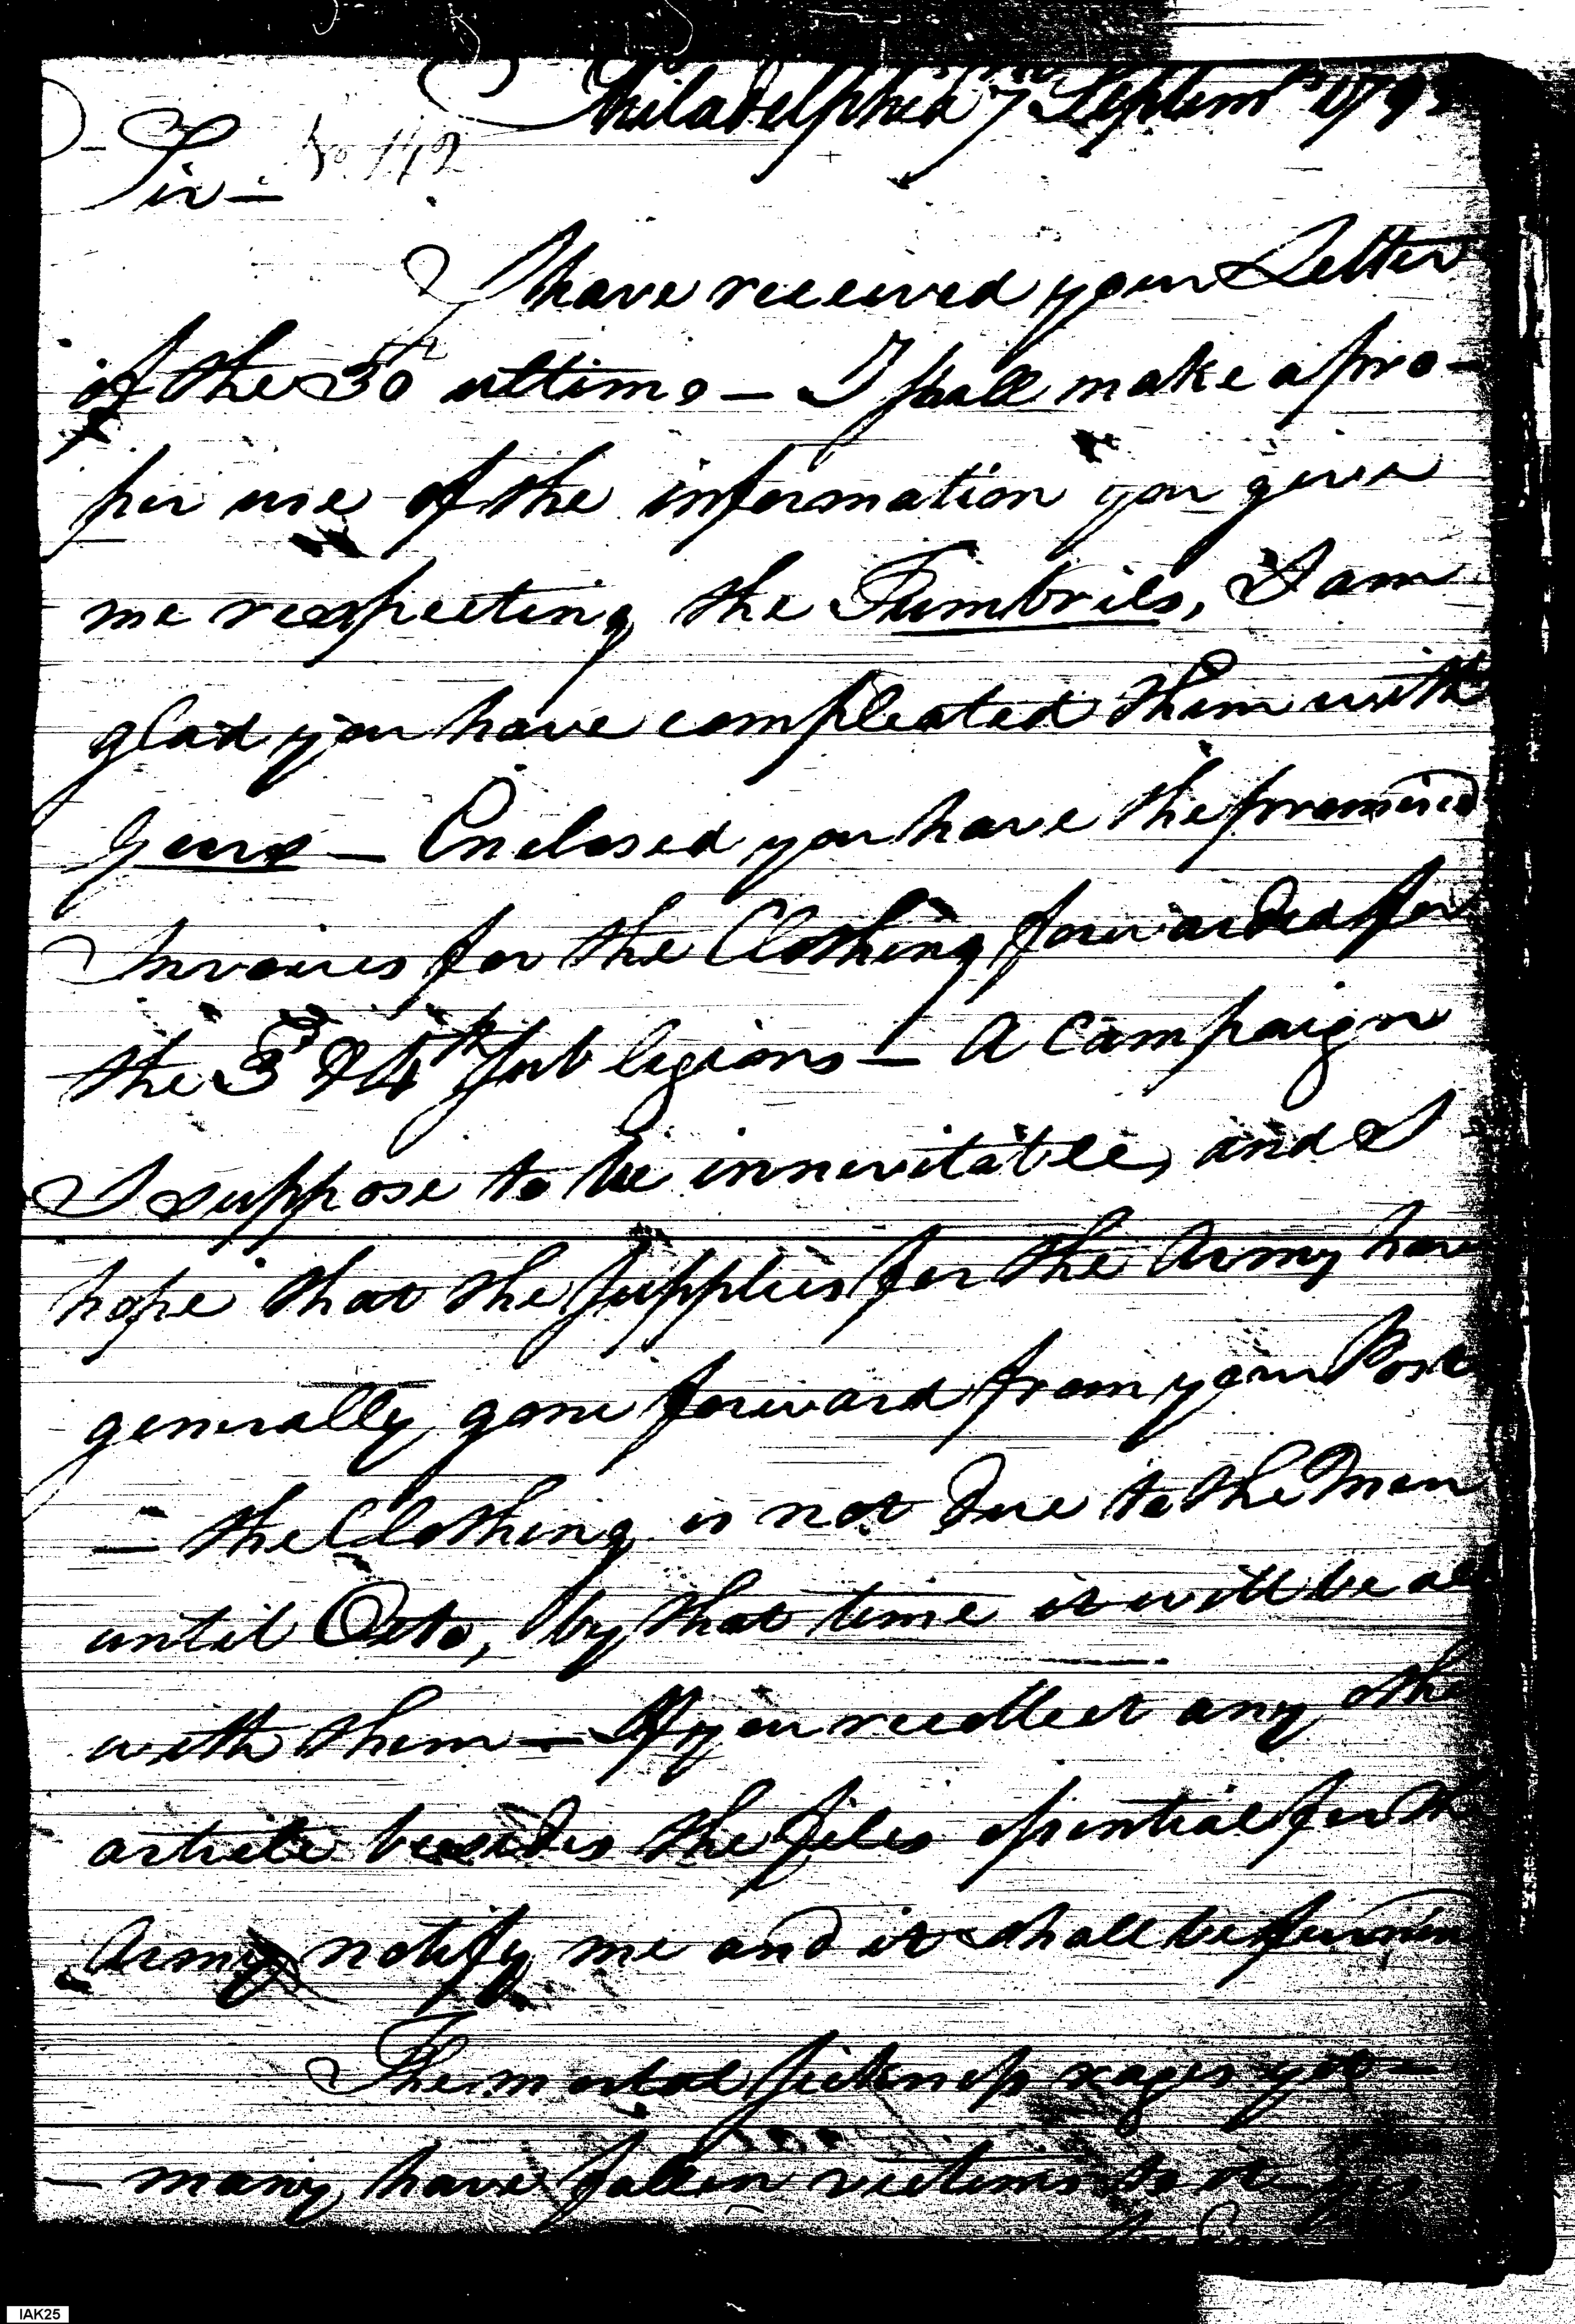 Philadelphia 7 Septemr 1793
Sir — No. 142
I have received your Letter
of the 30th ultimo — I shall make a pro-
per use of the information you given
me respecting the Tumbrils, I am
glad you have compleated them with
Gears — Enclosed you have the promised
Invoices for the Clothing forwarded for
the 3d & 4th sub legions — A Campaign
I suppose to be innevitable, and I
hope that the supplies for the Army have
generally gone forward from your Post
— the Clothing is not due to the Men
until Octo, by that time it will be all
with them — If you recollect any othe
article besides the files essential for th
Army notify me and it shall be furnish
The mortal sickness rages yet —
— many have fallen victims to it
IAK25